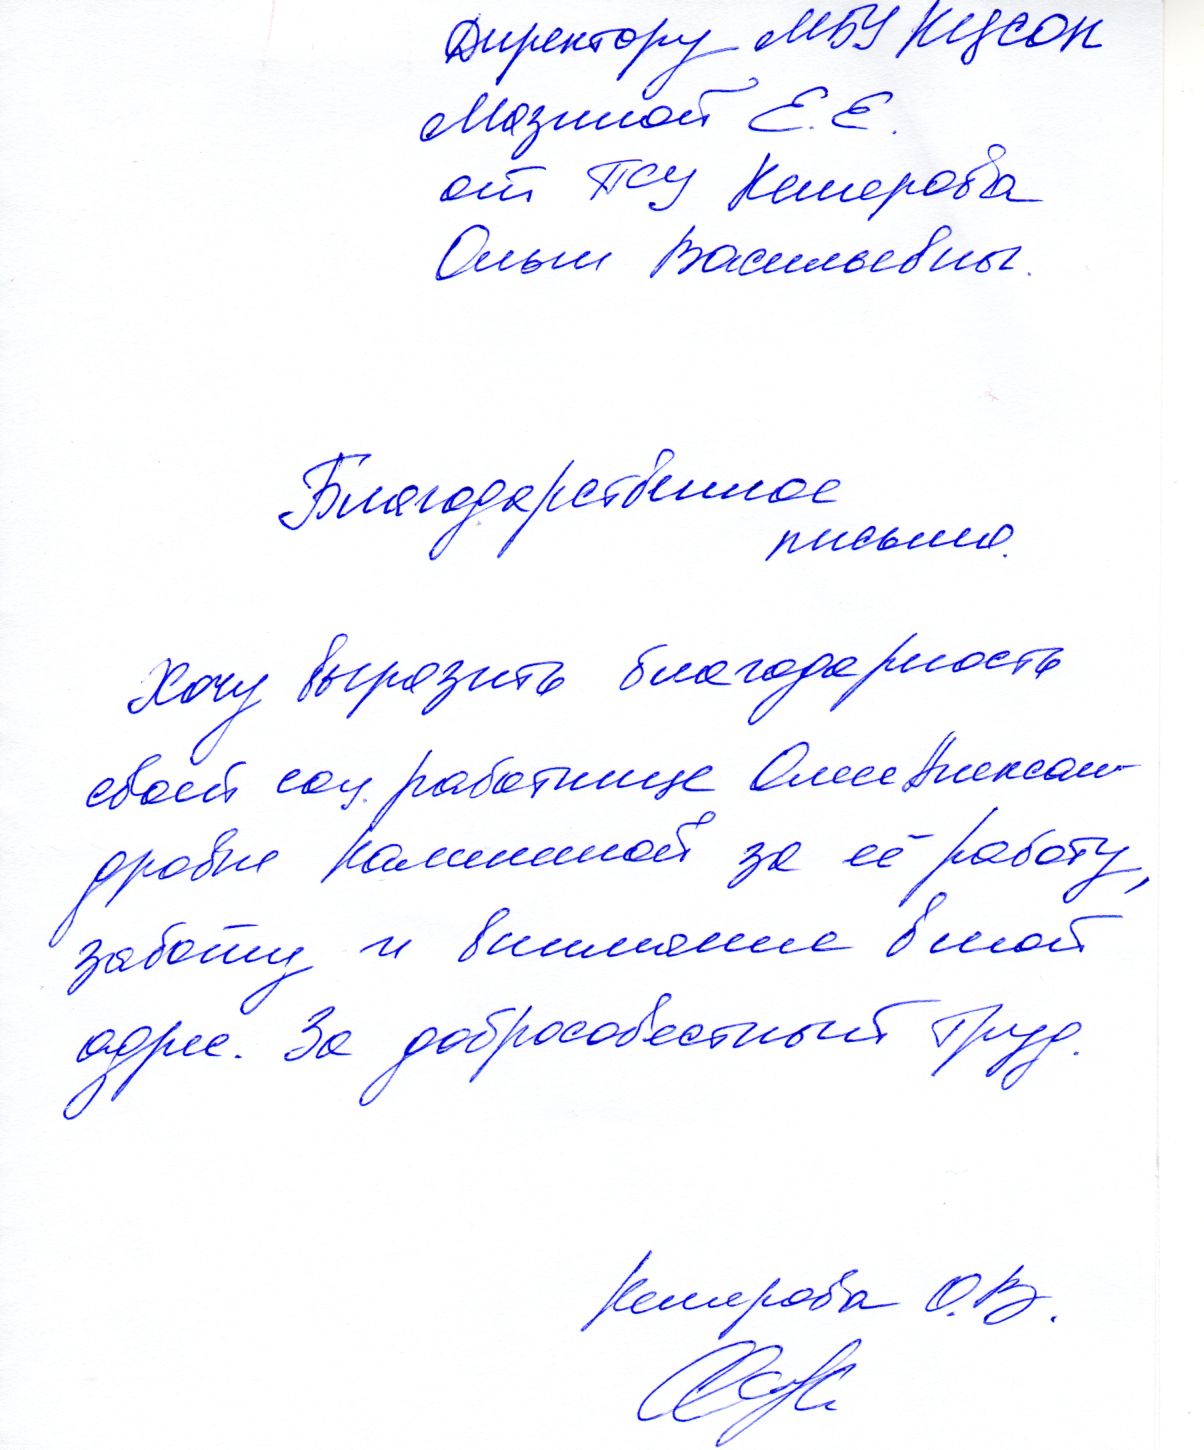 Директору МБУ КЦСОН
Мазиной Е.Е.
от ПСУ Кемерова
Ольги Васильевны.
Благодарственное
письмо.
Хочу выразить благодарность
своей соц. работнице Олесе Алексан-
дровне Калининой за её работу,
заботу и внимание в мой
адрес. За добросовестный труд.
Кемерова О.В.